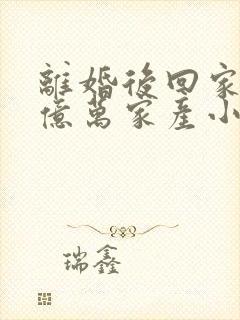 離婚後回家
億萬家產小
瑞鑫